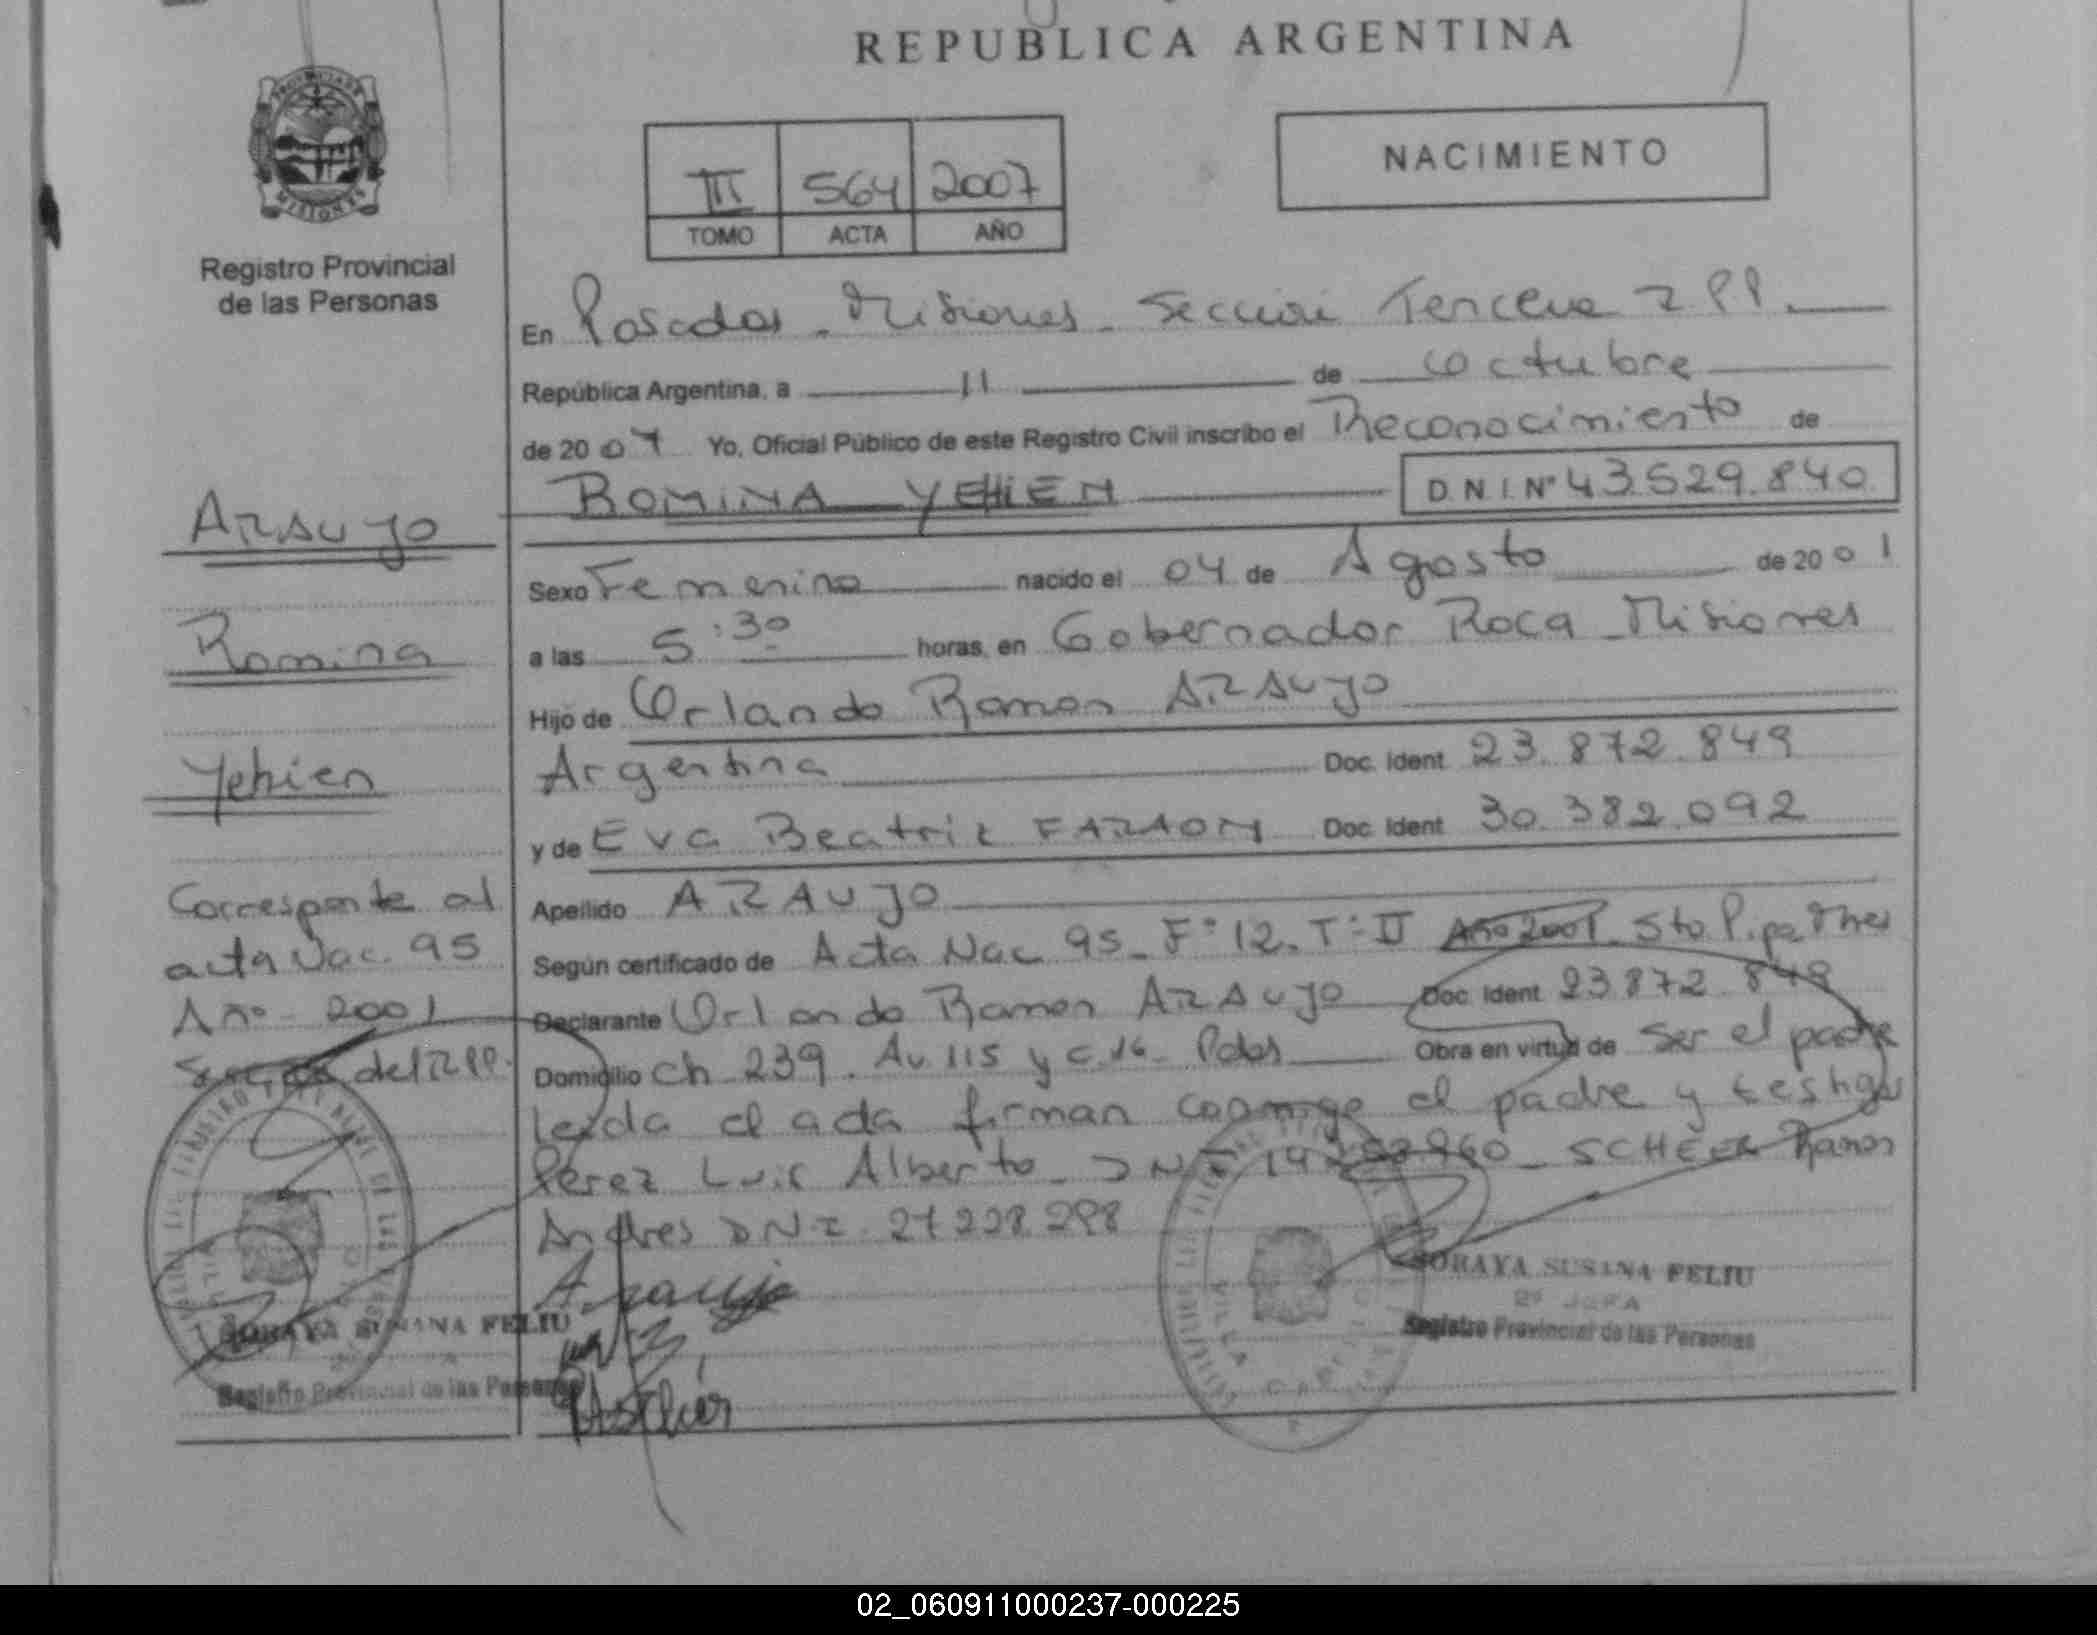 REPUBLICA ARGENTINA
PROVINCIA DE
MISIONES
Registro Provincial
de las Personas
III 564 2007
TOMO ACTA AÑO
NACIMIENTO
En Posadas - Misiones - Sección Tercera
República Argentina, a 11 de Octubre
de 2007 Yo, Oficial Público de este Registro Civil inscribo el Reconocimiento de
ROMINA YEHIEN D.N.I. Nº 43.529.840
Sexo Femenino nacido el 04 de Agosto de 2001
a las 5:30 horas, en Gobernador Roca - Misiones
Hijo de Orlando Ramon ARAUJO
Argentina Doc. Ident 23.872.849
y de Eva Beatriz FARAON Doc. Ident 30.382.092
Apellido ARAUJO
Según certificado de Acta Nac 95 - Fº 12 - Tº II Año 2001 Sto P.
Declarante Orlando Ramon ARAUJO Doc. Ident 23872.849
Domicilio Ch 239. Av. 115 y c.16 - Pdas Obra en virtud de ser el padre
leida el acta firman conmigo el padre y testigos
Perez Luis Alberto - DNI Ramon
Andres DNI. 27228.298
Araujo
SORAYA SUSANA FELIU
2º JEFA
Registro Provincial de las Personas
ARAUJO
Romina
Yehien
Corresponte al
acta Nac. 95
Año - 2001
del R.P.P.
SORAYA SUSANA FELIU
Registro Provincial de las Personas
02_060911000237-000225